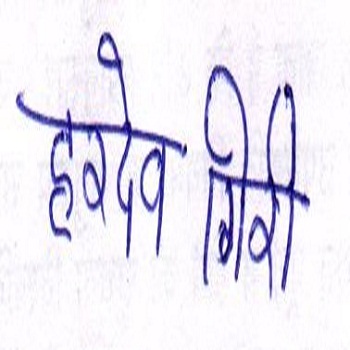 हरदेव गिरी